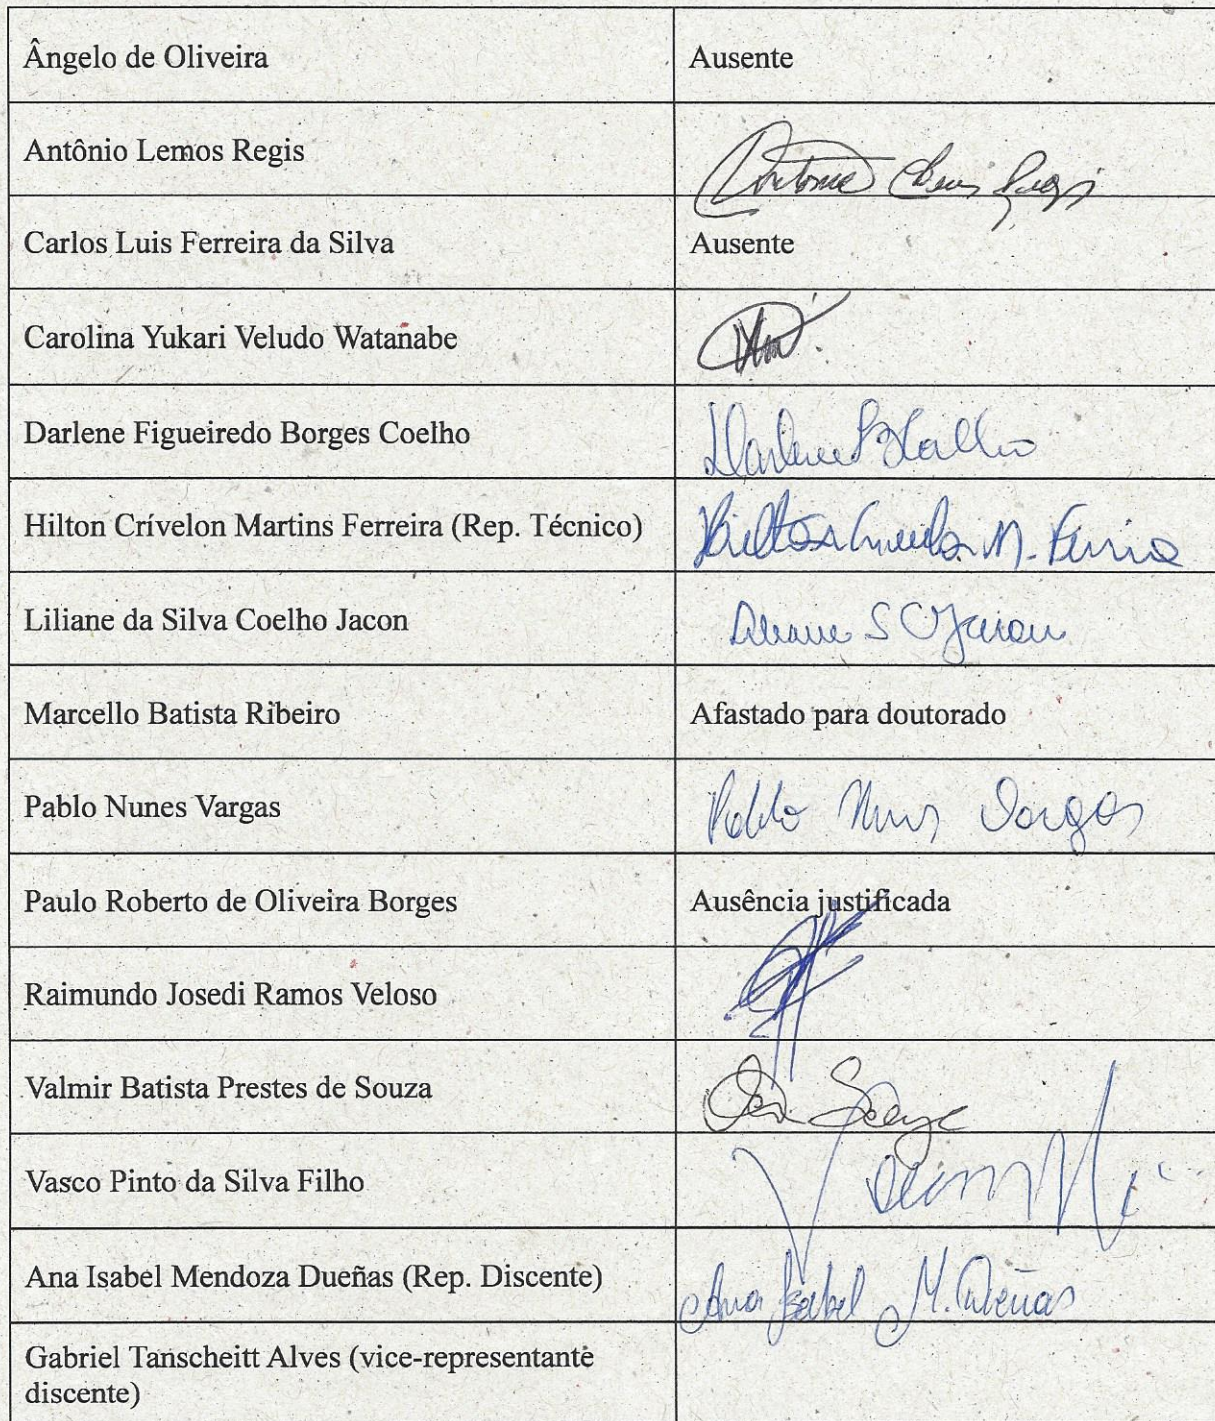 Ângelo de Oliveira Ausente
Antônio Lemos Regis
Carlos Luis Ferreira da Silva Ausente
Carolina Yukari Veludo Watanabe
Darlene Figueiredo Borges Coelho Darlene
Hilton Crívelon Martins Ferreira (Rep. Técnico) M.
Liliane da Silva Coelho Jacon
Marcello Batista Ribeiro Afastado para doutorado
Pablo Nunes Vargas Pablo Nunes Vargas
Paulo Roberto de Oliveira Borges Ausência justificada
Raimundo Josedi Ramos Veloso
Valmir Batista Prestes de Souza
Vasco Pinto da Silva Filho
Ana Isabel Mendoza Dueñas (Rep. Discente) Ana Isabel M. Dueñas
Gabriel Tanscheitt Alves (vice-representante
discente)